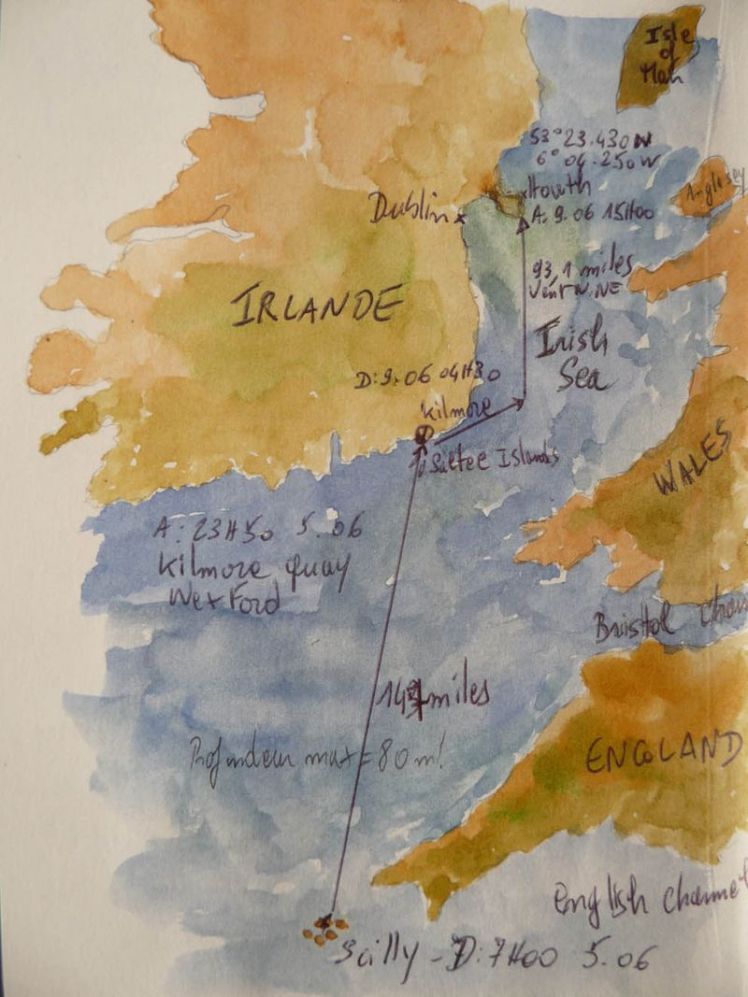 Isle
of
Man
53°23.430N
6° 04.250W
Howth
Anglesey
Dublin
A: 9.06 15H00
93,1 miles
Vent N.NE
IRLANDE
Irish
Sea
D: 9.06 04H30
Kilmore
Saltee Islands
WALES
A: 23H50 5.06
Kilmore quay
Wexford
Bristol
miles
Profondeur max = 80m!
ENGLAND
English Channel
Scilly - D: 7H00 5.06